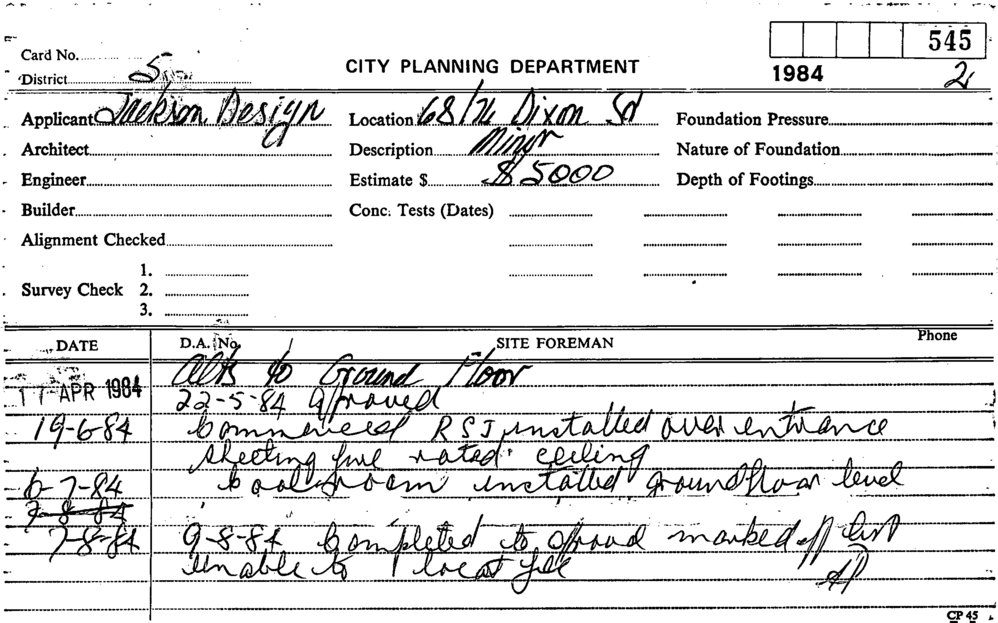 545
Card No.
CITY PLANNING DEPARTMENT
District 5
1984 2
Applicant Jackson Design Location 68/76 Dixon Sd Foundation Pressure
Architect Description Minor Nature of Foundation
Engineer Estimate $ $5000 Depth of Footings
Builder Conc. Tests (Dates)
Alignment Checked
1.
Survey Check 2.
3.
DATE D.A. No. SITE FOREMAN Phone
Alts to Ground Floor
17 APR 1984
22-5-84 Aproved
19-6-84 Commenced RSJ installed over entrance
sheeting fire rated ceiling
6-7-84 Cool room installed ground floor level
7-8-84
7-8-84 9-8-84 Completed to marked off list
Unable to locat file
CP 45